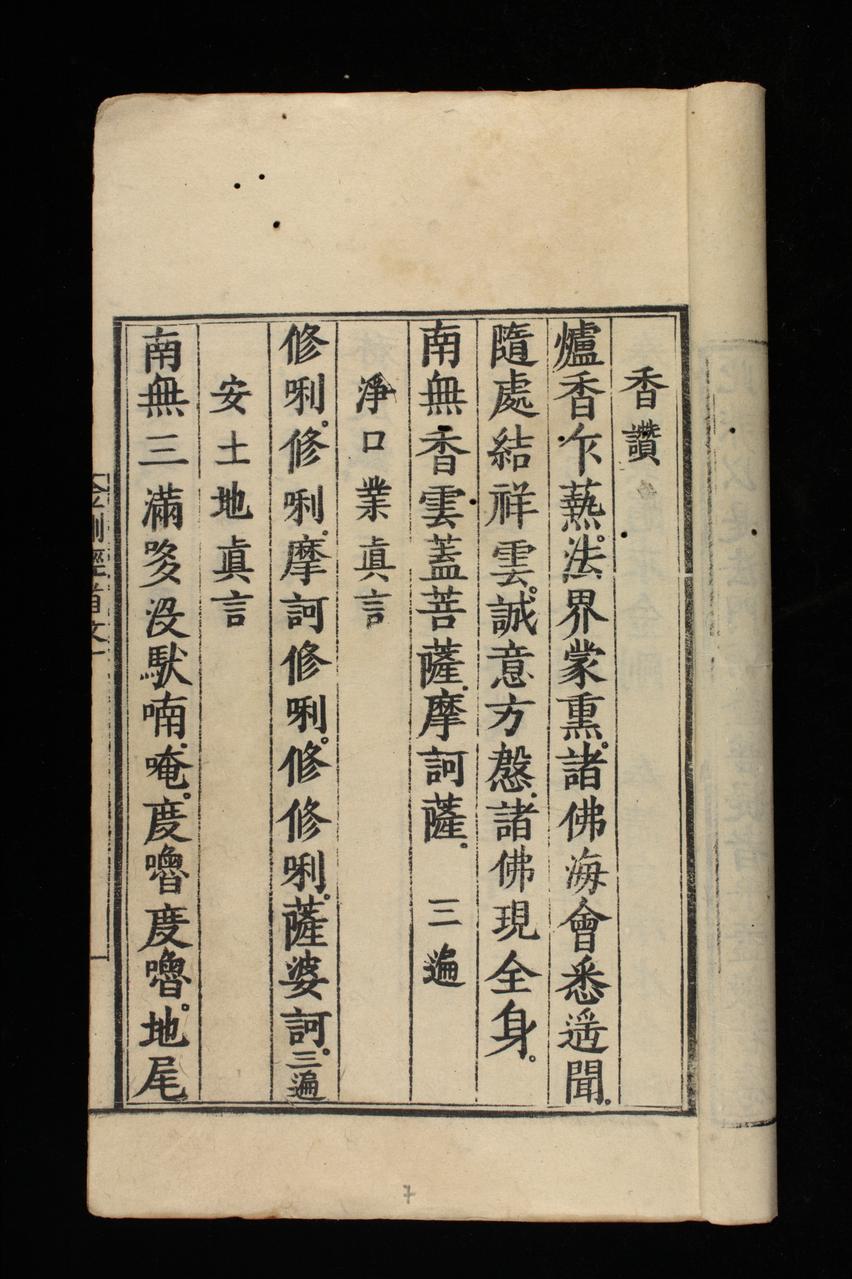 香讚
爐香乍爇。法界蒙熏。諸佛海會悉遥聞。
隨處結祥雲。誠意方慇。諸佛現全身。
南無香雲蓋菩薩。摩訶薩。 三遍
淨口業眞言
修唎。修唎。摩訶修唎。修修唎。薩婆訶。三遍
安土地眞言
南無三滿哆沒馱喃。唵。度嚕度嚕。地尾
金剛經首文
7